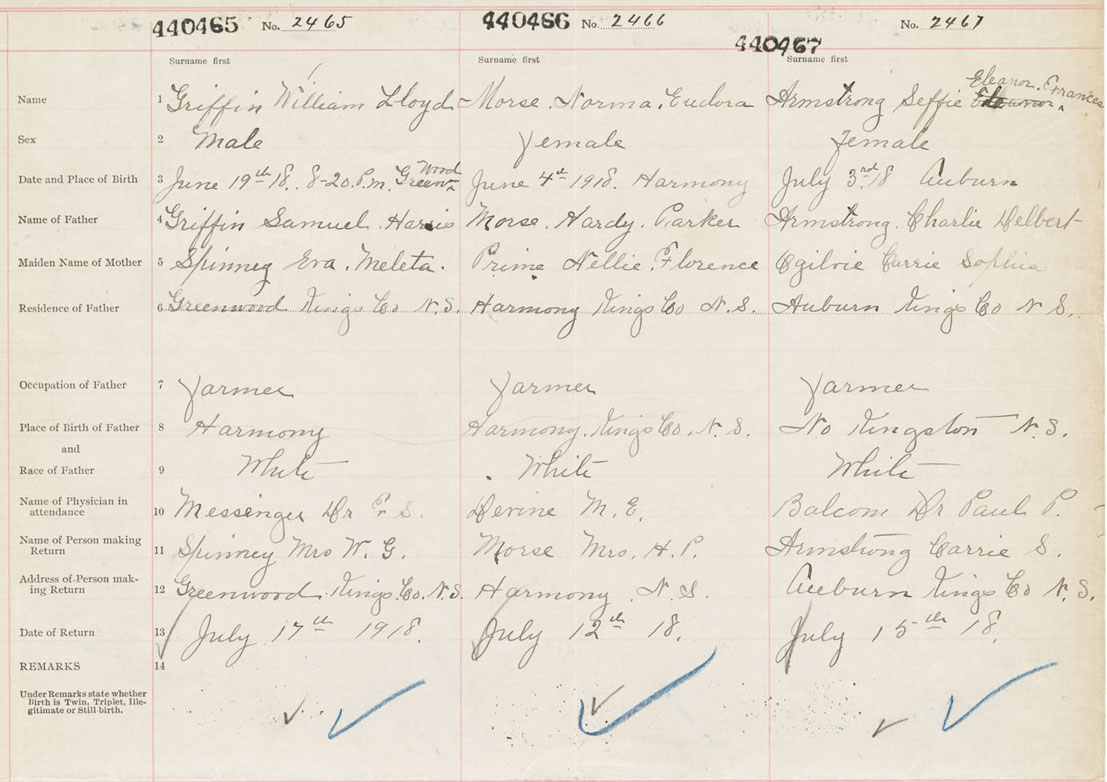 440465 No. 2465 440466 No. 2466 440467 No. 2467
Surname first Surname first Surname first
Eleanor Frances
Name 1 Griffin William Lloyd Morse. Norma. Eudora Armstrong Seffie
Sex 2 Male Female Female
Wood
Date and Place of Birth 3 June 19th 18. 8-20. P.M. Green- June 4th 1918. Harmony July 3rd 18 Auburn
Name of Father 4 Griffin Samuel Harris Morse. Hardy. Parker Armstrong. Charlie Delbert
Maiden Name of Mother 5 Spinney Eva. Meleta. Prime Nellie. Florence Ogilvie Carrie Sophia
Residence of Father 6 Greenwood Kings Co N.S. Harmony Kings Co N.S. Auburn Kings Co N S.
Occupation of Father 7 Farmer Farmer Farmer
Place of Birth of Father 8 Harmony Harmony. Kings Co. N. S. No Kingston N.S.
and
Race of Father 9 White White White
Name of Physician in
attendance 10 Messenger Dr F. S. Devine M. E. Balcom Dr Paul P.
Name of Person making
Return 11 Spinney Mrs W. G. Morse Mrs. H. P. Armstrong Carrie S.
Address of Person mak-
ing Return 12 Greenwood. Kings. Co. N.S. Harmony N.S. Auburn Kings Co N.S.
Date of Return 13 July 17th 1918. July 12th 18. July 15th 18.
REMARKS 14
Under Remarks state whether
Birth is Twin, Triplet, Ille-
gitimate or Still birth.